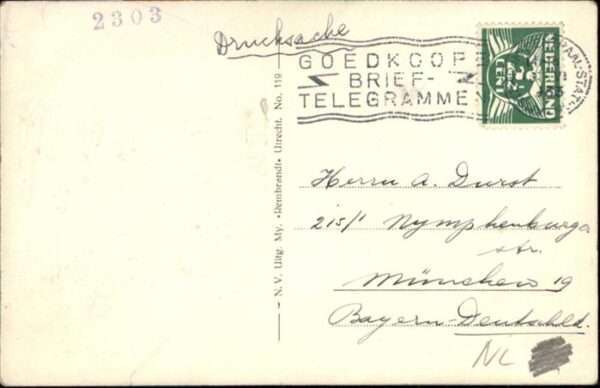 2303
Drucksache
GOEDKOOP
BRIEF-
TELEGRAMME
NEDERLAND
CENT
N.V. Uitg. My. „Rembrandt" Utrecht. No. 119
Herrn A. Durst
215/1 Nymphenburger
str.
München 19
Bayern-Deutschld.
NL